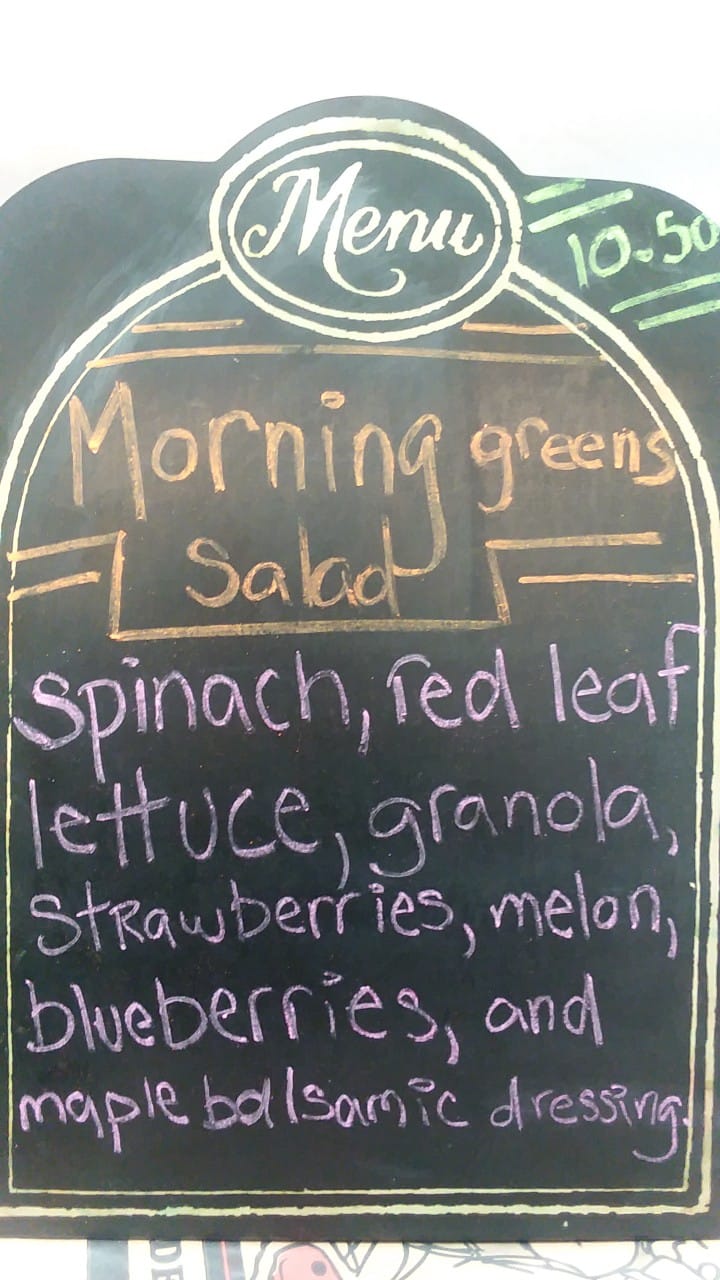 Menu
10.50
Morning greens
Salad
Spinach, red leaf
lettuce, granola,
Strawberries, melon,
blueberries, and
maple balsamic dressing.
DE